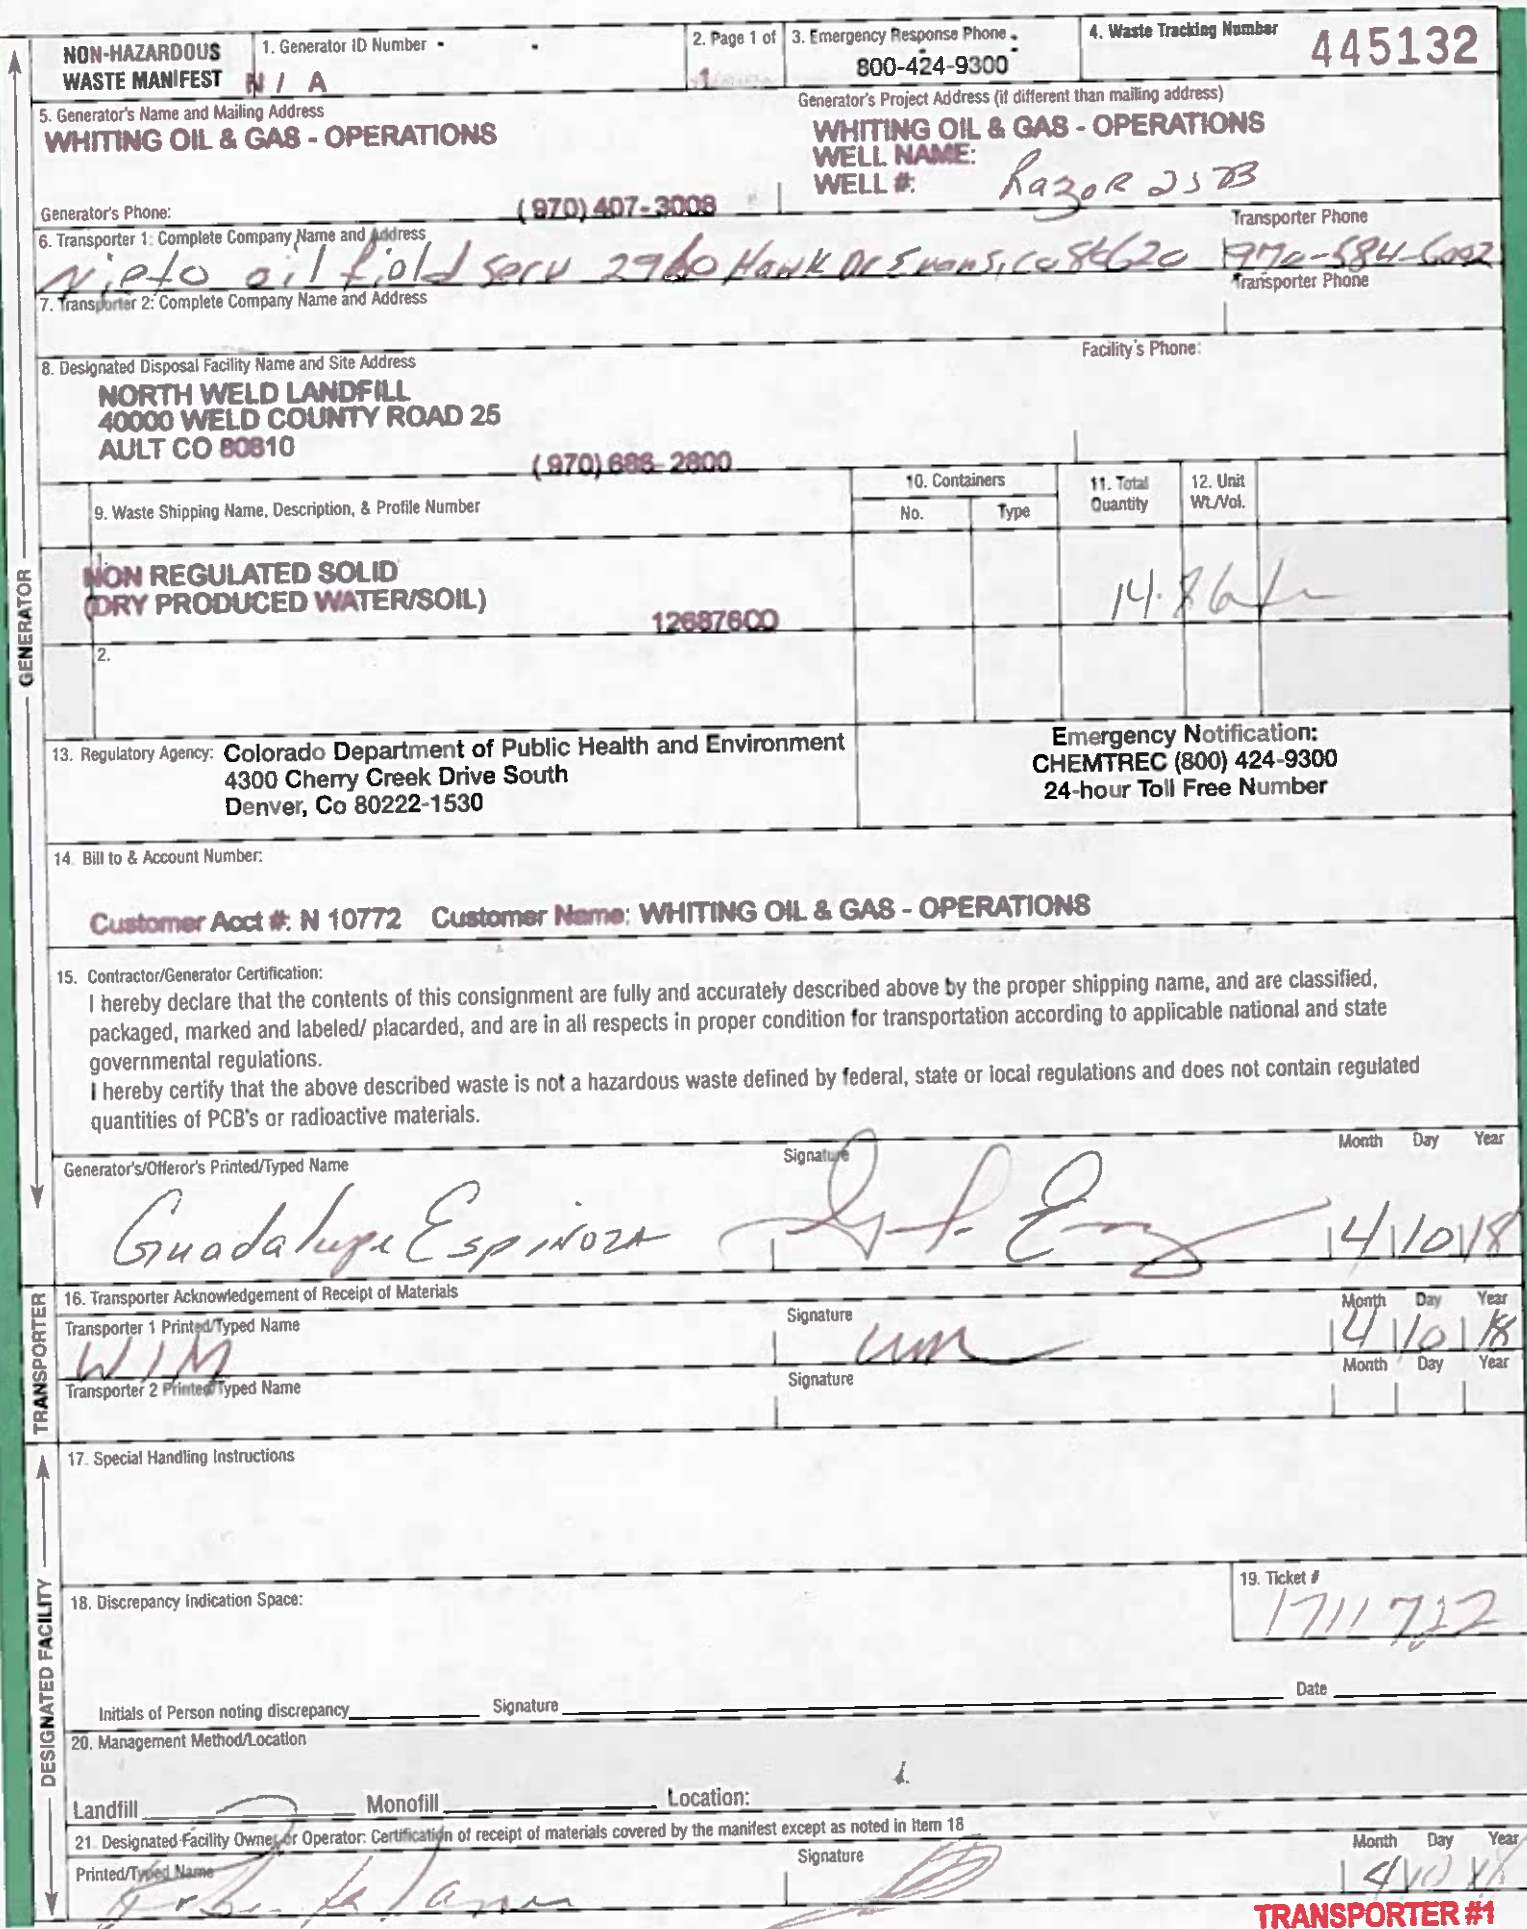 NON-HAZARDOUS WASTE MANIFEST
1. Generator ID Number
N / A
2. Page 1 of
1
3. Emergency Response Phone
800-424-9300
4. Waste Tracking Number
445132
5. Generator's Name and Mailing Address
WHITING OIL & GAS - OPERATIONS
Generator's Project Address (if different than mailing address)
WHITING OIL & GAS - OPERATIONS
WELL NAME:
WELL #: Razor
Generator's Phone: (970) 407-3008
6. Transporter 1: Complete Company Name and Address
Transporter Phone
Nieto oil field serv 2960 Hawk Dr Evans, co 80620
7. Transporter 2: Complete Company Name and Address
Transporter Phone
8. Designated Disposal Facility Name and Site Address
Facility's Phone:
NORTH WELD LANDFILL
40000 WELD COUNTY ROAD 25
AULT CO 80610
(970) 686-2800
9. Waste Shipping Name, Description, & Profile Number
10. Containers
No. Type
11. Total Quantity
12. Unit Wt./Vol.
NON REGULATED SOLID
(DRY PRODUCED WATER/SOIL)
12687600
14.86
2.
13. Regulatory Agency: Colorado Department of Public Health and Environment
4300 Cherry Creek Drive South
Denver, Co 80222-1530
Emergency Notification:
CHEMTREC (800) 424-9300
24-hour Toll Free Number
14. Bill to & Account Number:
Customer Acct #: N 10772 Customer Name: WHITING OIL & GAS - OPERATIONS
15. Contractor/Generator Certification:
I hereby declare that the contents of this consignment are fully and accurately described above by the proper shipping name, and are classified,
packaged, marked and labeled/ placarded, and are in all respects in proper condition for transportation according to applicable national and state
governmental regulations.
I hereby certify that the above described waste is not a hazardous waste defined by federal, state or local regulations and does not contain regulated
quantities of PCB's or radioactive materials.
Generator's/Offeror's Printed/Typed Name
Signature
Month Day Year
Guadalupe Espinoza
4 10 18
16. Transporter Acknowledgement of Receipt of Materials
Transporter 1 Printed/Typed Name
Signature
Month Day Year
WIM
4 10 18
Transporter 2 Printed/Typed Name
Signature
Month Day Year
17. Special Handling Instructions
18. Discrepancy Indication Space:
19. Ticket #
1711722
Initials of Person noting discrepancy
Signature
Date
20. Management Method/Location
Landfill Monofill Location:
21. Designated Facility Owner or Operator: Certification of receipt of materials covered by the manifest except as noted in Item 18
Printed/Typed Name
Signature
Month Day Year
4 10 18
TRANSPORTER #1
GENERATOR
TRANSPORTER
DESIGNATED FACILITY